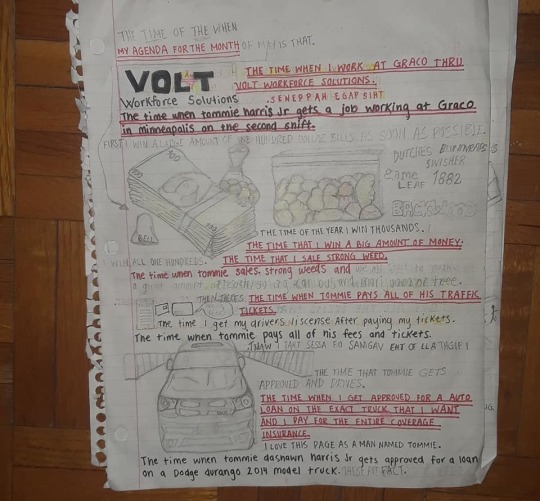 THE TIME OF THE WHEN
MY AGENDA FOR THE MONTH OF MAY IS THAT.
VOLT
Workforce Solutions
THE TIME WHEN I WORK AT GRACO THRU
VOLT WORKFORCE SOLUTIONS.
.SENEPPAH EGAP SIHT
The time when tommie harris Jr gets a job working at Graco
in minneapolis on the second shift.
FIRST I WIN A LARGE AMOUNT OF ONE HUNDRED DOLLAR BILLS AS SOON AS POSSIBLE.
100
DUTCHES
SWISHER
GAME
LEAF 1882
BELL
THE TIME OF THE YEAR I WIN THOUSANDS.
THE TIME THAT I WIN A BIG AMOUNT OF MONEY.
I WIN ALL ONE HUNDREDS.
THE TIME THAT I SALE STRONG WEED.
The time when tommie sales strong weeds and
THE TIME WHEN TOMMIE PAYS ALL OF HIS TRAFFIC
TICKETS.
The time I get my drivers liscense After paying my tickets.
The time when tommie pays all of his fees and tickets.
THE TIME THAT TOMMIE GETS
APPROVED AND DRIVES.
THE TIME WHEN I GET APPROVED FOR A AUTO
LOAN ON THE EXACT TRUCK THAT I WANT
AND I PAY FOR THE ENTIRE COVERAGE
INSURANCE.
I LOVE THIS PAGE AS A MAN NAMED TOMMIE.
The time when tommie dashawn harris Jr gets approved for a loan
on a Dodge durango 2014 model truck. THESE ARE FACT.